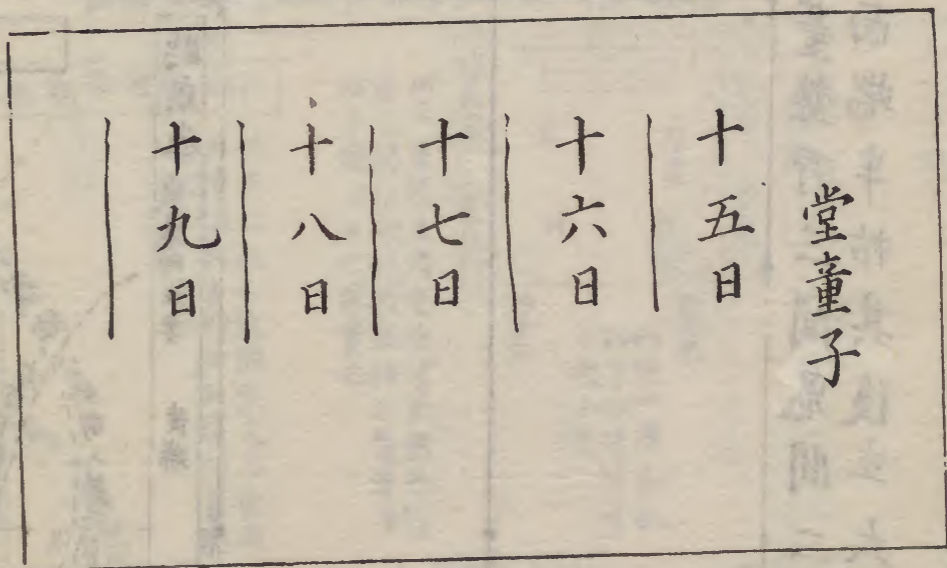 堂童子
十五日
十六日
十七日
十八日
十九日